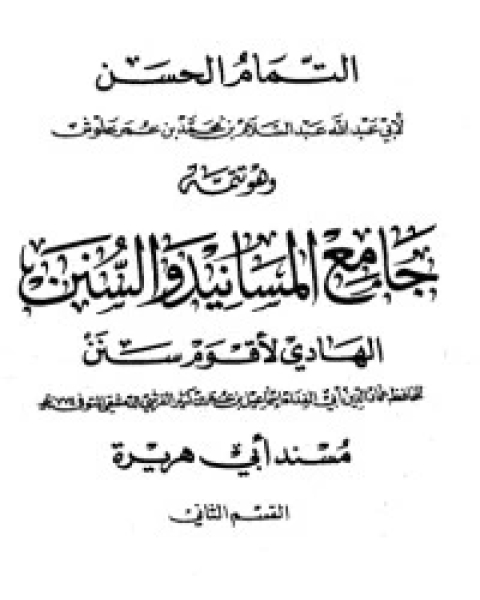 التمام الحسن
لأبي عبد الله عبد السلام بن محمد بن عمر علوش
وهو تتمة
جامع المسانيد والسنن
الهادي لأقوم سنن
للحافظ عماد الدين أبي الفداء إسماعيل بن عمر بن كثير القرشي الدمشقي المتوفى ٧٧٤هـ
مسند أبي هريرة
القسم الثاني